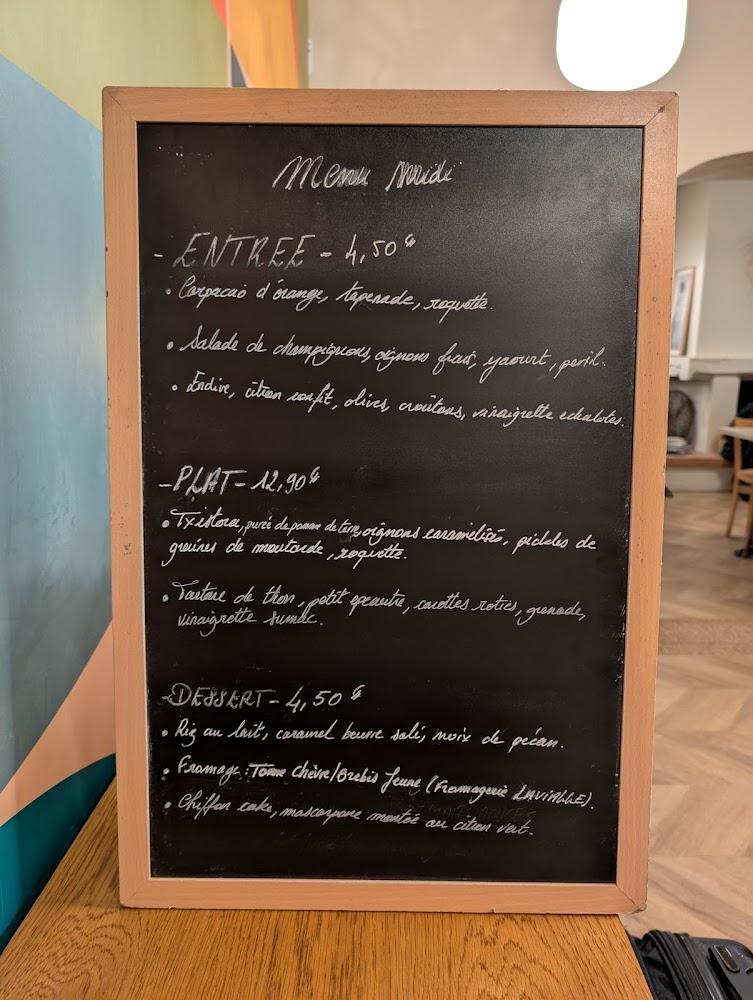 Menu Midi
- ENTREE - 4,50€
• Carpacio d'orange, tapenade, roquette.
• Salade de champignons, oignons frais, yaourt, persil.
• Endive, citron confit, olives, croûtons, vinaigrette echalotes.
- PLAT - 12,90€
• Txistora, purée de pomme de terre, oignons caramélisés, pickles de
graines de moutarde, roquette.
• Tartare de thon, petit epeautre, carottes roties, grenade,
vinaigrette sumac.
- DESSERT - 4,50€
• Riz au lait, caramel beurre salé, noix de pécan.
• Fromage: Tomme chèvre/Brebis Jeune (Fromagerie LAVIALLE).
• Chiffon cake, mascarpone montée au citron vert.